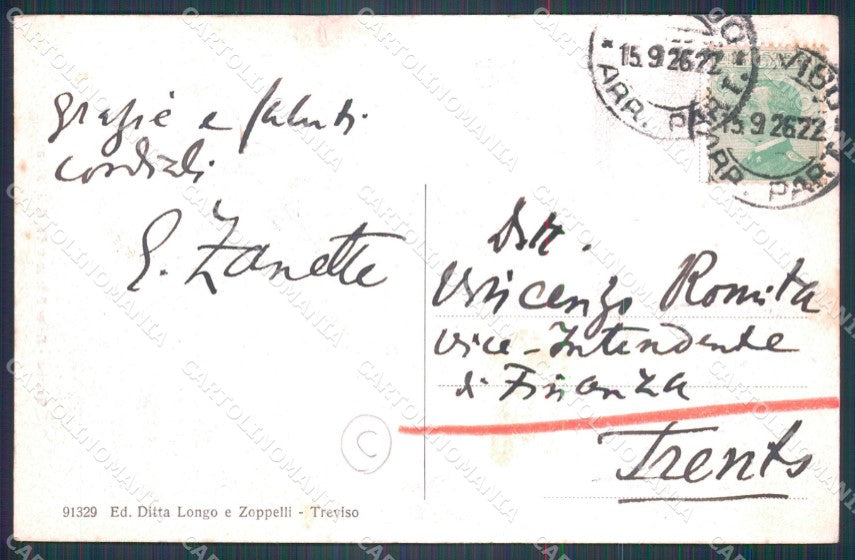 grazie e saluti
cordiali
E. Zanette
Dott.
Vincenzo Romita
Vice-Intendente
di Finanza
Trento
15.9.26.22
ARR. PART.
15.9.26.22
ARR. PART.
C
91329 Ed. Ditta Longo e Zoppelli - Treviso
CARTOLINOMANIA